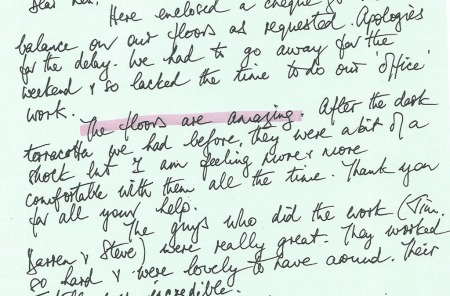 Here enclosed a cheque
balance on our floors as requested. Apologies
for the delay. We had to go away for the
weekend & so lacked the time to do our 'office'
work.
The floors are amazing. After the dark
terracotta we had before, they were a bit of a
shock but I am feeling more & more
comfortable with them all the time. Thank you
for all your help.
The guys who did the work (Tim,
Darren & Steve) were really great. They worked
so hard & were lovely to have around. Their
incredible.